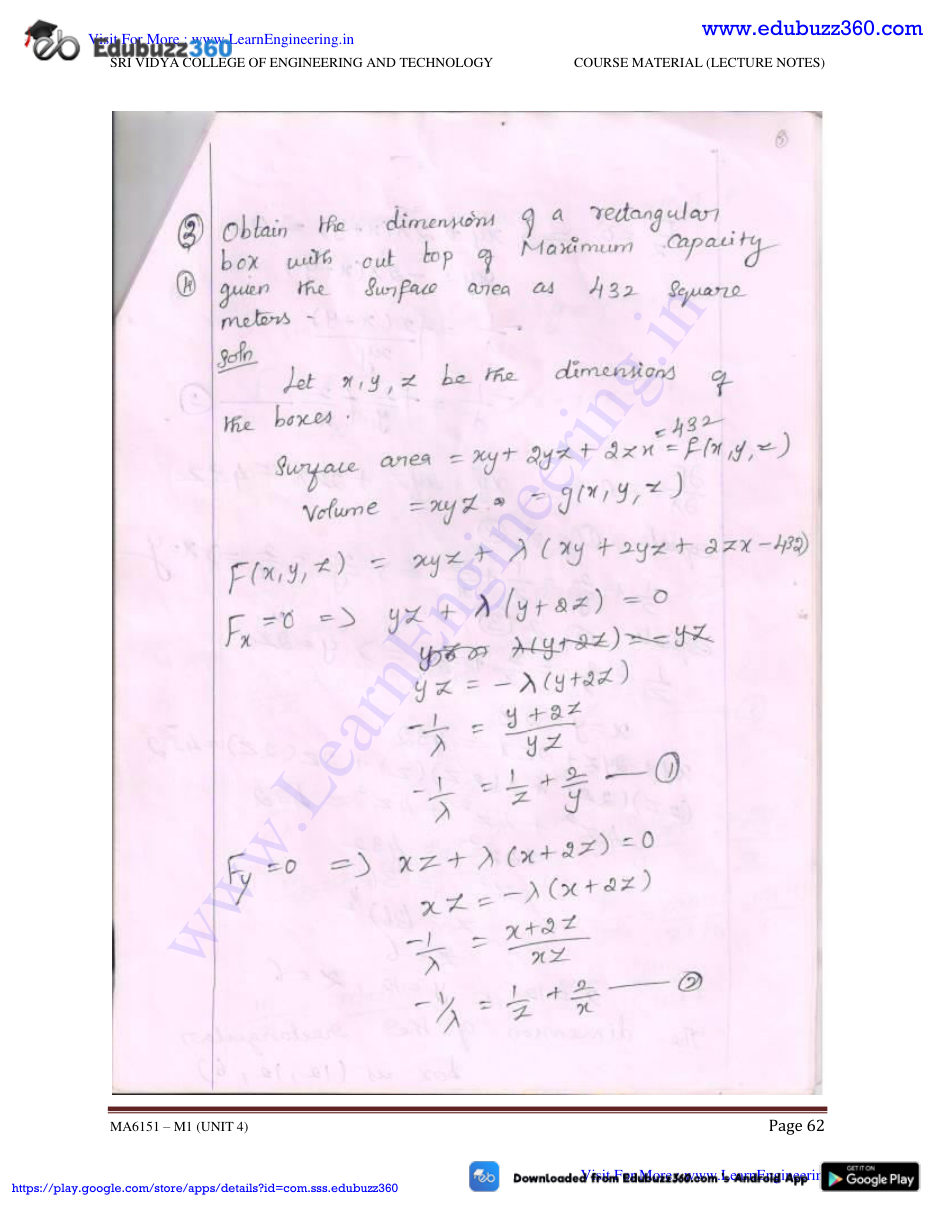 www.edubuzz360.com
Visit For More : www.LearnEngineering.in
Edubuzz360
SRI VIDYA COLLEGE OF ENGINEERING AND TECHNOLOGY COURSE MATERIAL (LECTURE NOTES)
③ Obtain the dimensions of a rectangular
box with out top of Maximum Capacity
given the Surface area as 432 Square
meters.
Soln
Let x, y, z be the dimensions of
the boxes.
Surface area = xy + 2yz + 2zx = f(x, y, z) = 432
Volume = xyz = g(x, y, z)
F(x, y, z) = xyz + λ (xy + 2yz + 2zx - 432)
Fx = 0 => yz + λ (y + 2z) = 0
λ(y+2z) = -yz
yz = -λ(y+2z)
-1/λ = (y+2z)/yz
-1/λ = 1/z + 2/y — ①
Fy = 0 => xz + λ (x + 2z) = 0
xz = -λ(x+2z)
-1/λ = (x+2z)/xz
-1/λ = 1/z + 2/x — ②
www.LearnEngineering.in
MA6151 – M1 (UNIT 4) Page 62
Visit For More : www.LearnEngineerin
Downloaded from EduBuzz360.com 's Android App
GET IT ON
Google Play
https://play.google.com/store/apps/details?id=com.sss.edubuzz360